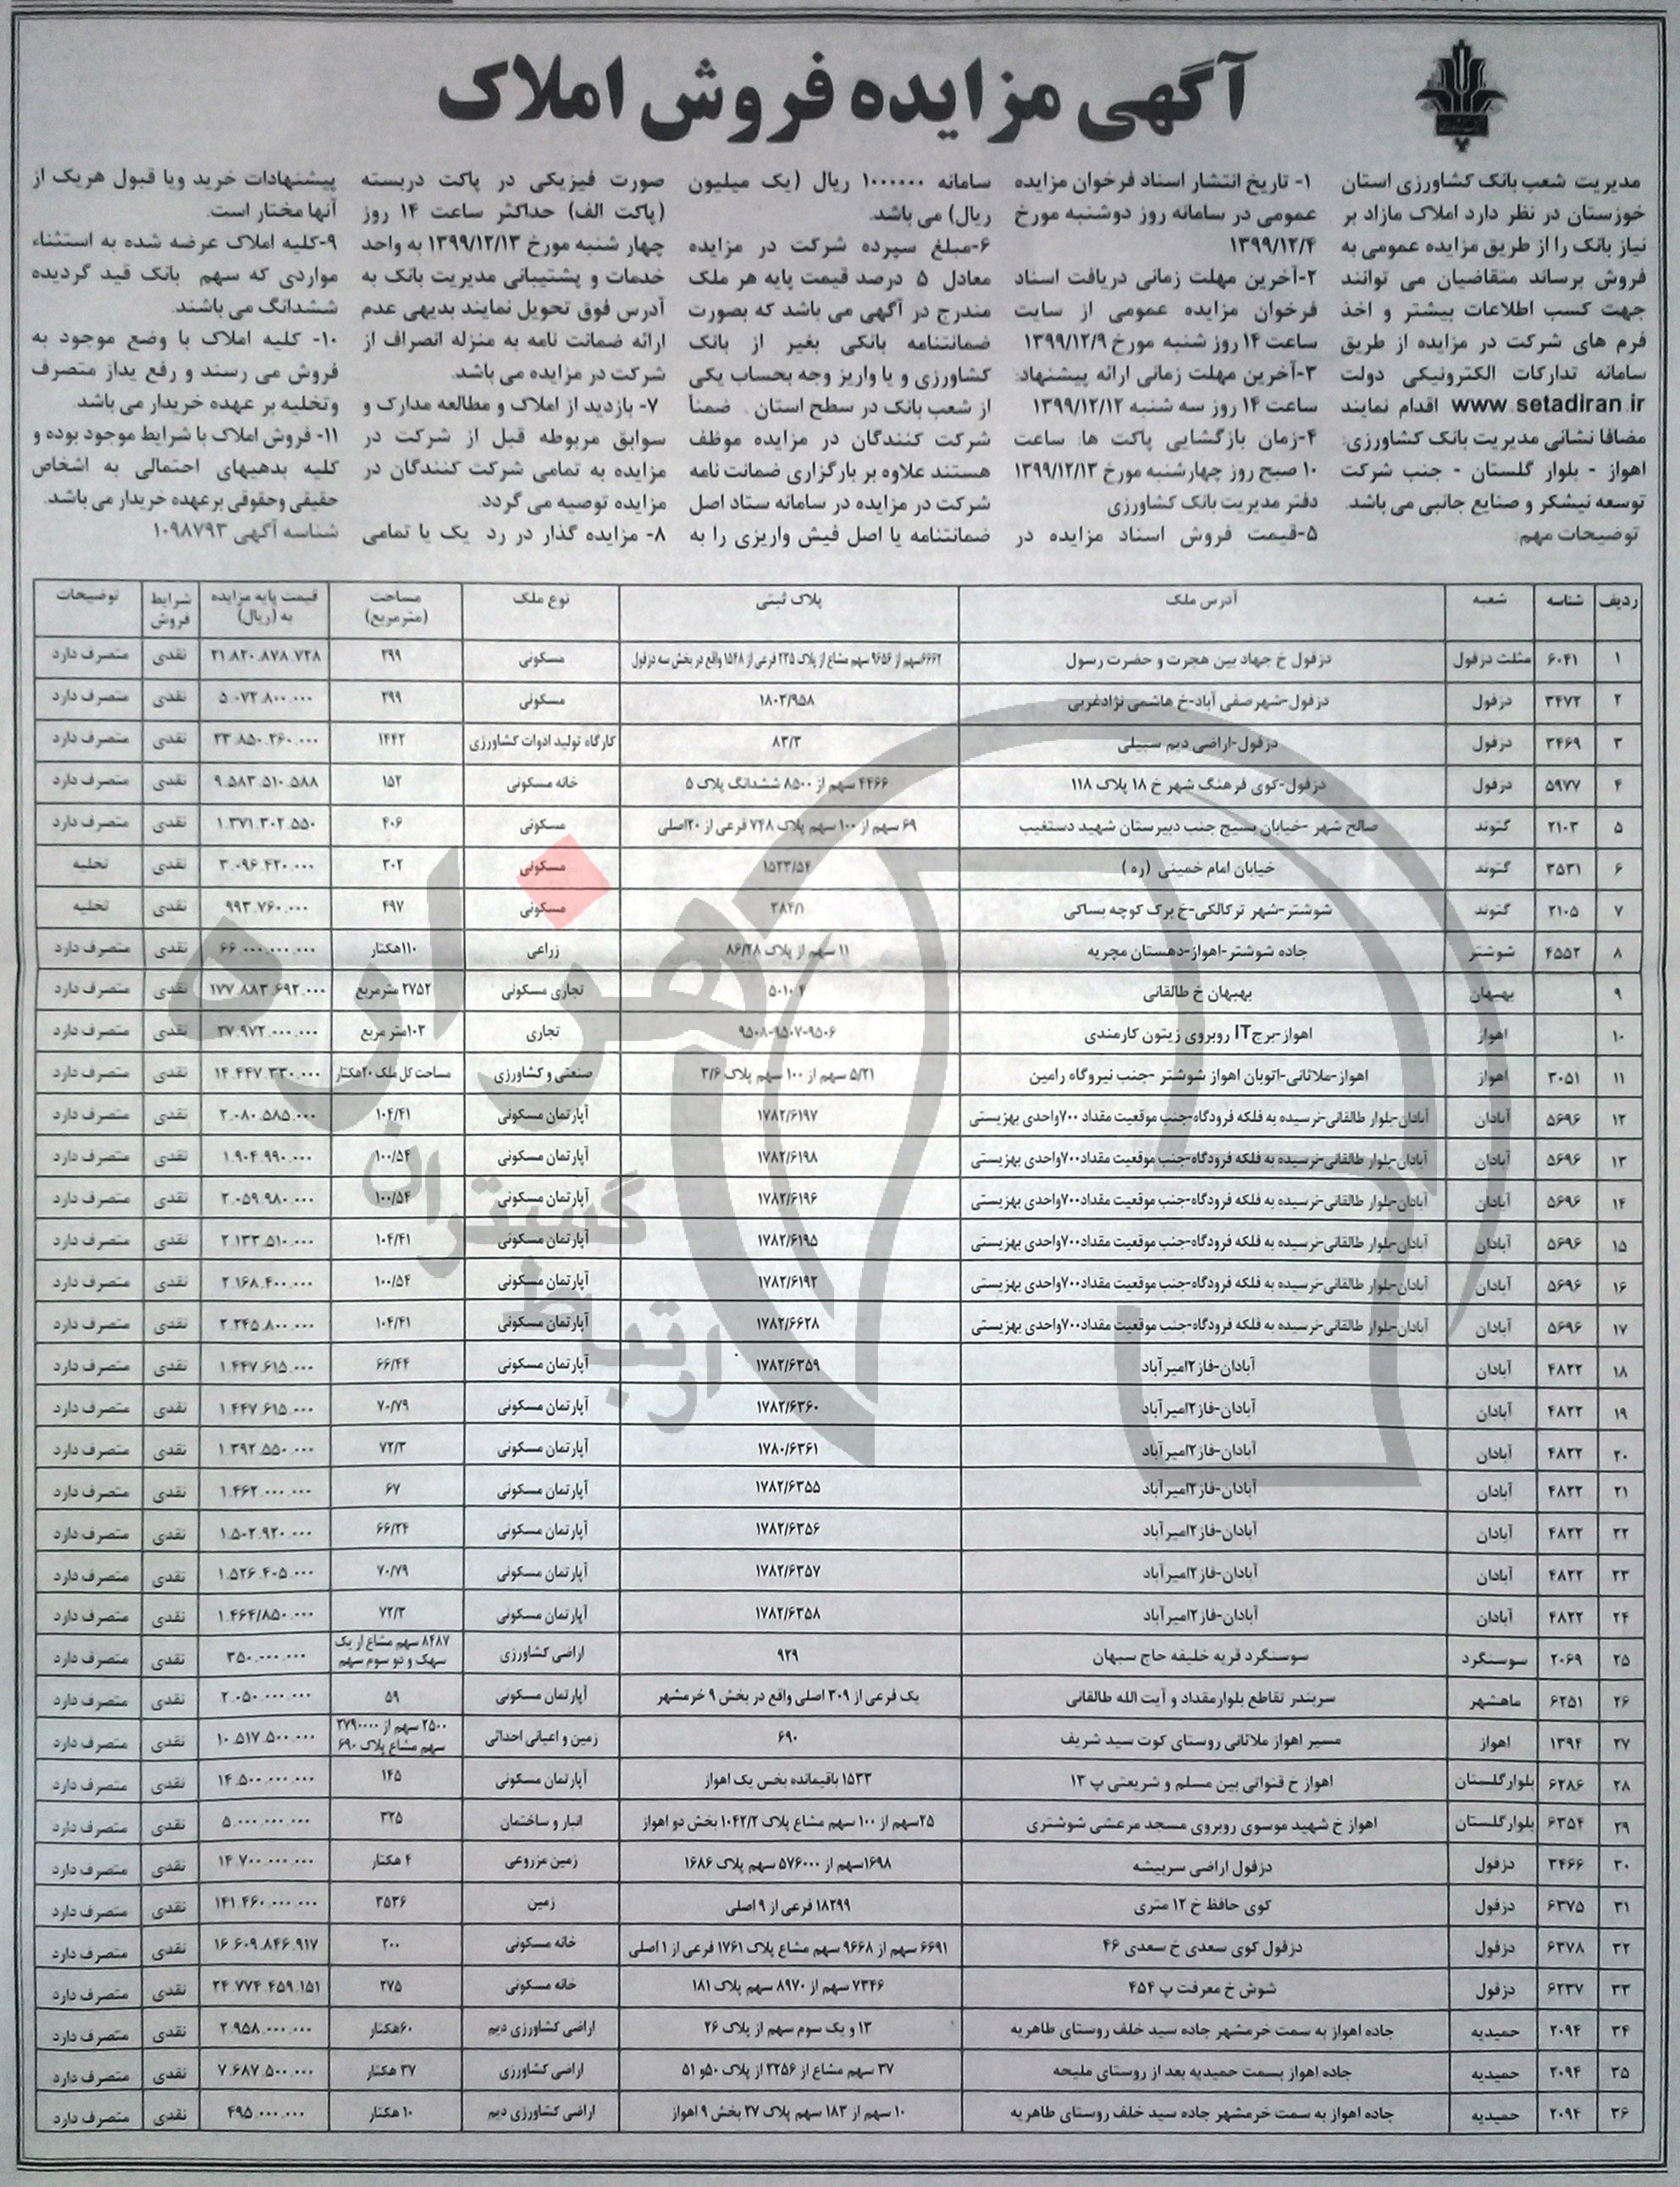 آگهی مزایده فروش املاک
مدیریت شعب بانک کشاورزی استان
خوزستان در نظر دارد املاک مازاد بر
نیاز بانک را از طریق مزایده عمومی به
فروش برساند متقاضیان می توانند
جهت کسب اطلاعات بیشتر و اخذ
فرم های شرکت در مزایده از طریق
سامانه تدارکات الکترونیکی دولت
www.setadiran.ir اقدام نمایند
مضافا نشانی مدیریت بانک کشاورزی:
اهواز - بلوار گلستان - جنب شرکت
توسعه نیشکر و صنایع جانبی می باشد.
توضیحات مهم:
۱- تاریخ انتشار اسناد فرخوان مزایده
عمومی در سامانه روز دوشنبه مورخ
۱۳۹۹/۱۲/۴
۲-آخرین مهلت زمانی دریافت اسناد
فرخوان مزایده عمومی از سایت
ساعت ۱۴ روز شنبه مورخ ۱۳۹۹/۱۲/۹
۳-آخرین مهلت زمانی ارائه پیشنهاد:
ساعت ۱۴ روز سه شنبه ۱۳۹۹/۱۲/۱۲
۴-زمان بازگشایی پاکت ها: ساعت
۱۰ صبح روز چهارشنبه مورخ ۱۳۹۹/۱۲/۱۳
دفتر مدیریت بانک کشاورزی
۵-قیمت فروش اسناد مزایده در
سامانه ۱۰۰۰۰۰۰ ریال (یک میلیون
ریال) می باشد.
۶-مبلغ سپرده شرکت در مزایده
معادل ۵ درصد قیمت پایه هر ملک
مندرج در آگهی می باشد که بصورت
ضمانتنامه بانکی بغیر از بانک
کشاورزی و یا واریز وجه بحساب یکی
از شعب بانک در سطح استان . ضمناً
شرکت کنندگان در مزایده موظف
هستند علاوه بر بارگزاری ضمانت نامه
شرکت در مزایده در سامانه ستاد اصل
ضمانتنامه یا اصل فیش واریزی را به
صورت فیزیکی در پاکت دربسته
(پاکت الف) حداکثر ساعت ۱۴ روز
چهار شنبه مورخ ۱۳۹۹/۱۲/۱۳ به واحد
خدمات و پشتیبانی مدیریت بانک به
آدرس فوق تحویل نمایند بدیهی عدم
ارائه ضمانت نامه به منزله انصراف از
شرکت در مزایده می باشد.
۷- بازدید از املاک و مطالعه مدارک و
سوابق مربوطه قبل از شرکت در
مزایده به تمامی شرکت کنندگان در
مزایده توصیه می گردد.
۸- مزایده گذار در رد یک یا تمامی
پیشنهادات خرید ویا قبول هریک از
آنها مختار است.
۹-کلیه املاک عرضه شده به استثناء
مواردی که سهم بانک قید گردیده
ششدانگ می باشند.
۱۰- کلیه املاک با وضع موجود به
فروش می رسند و رفع یداز متصرف
وتخلیه بر عهده خریدار می باشد.
۱۱- فروش املاک با شرایط موجود بوده و
کلیه بدهیهای احتمالی به اشخاص
حقیقی وحقوقی بر عهده خریدار می باشد.
شناسه آگهی ۱۰۹۸۷۹۳
ردیف شناسه شعبه آدرس ملک پلاک ثبتی نوع ملک مساحت (مترمربع) قیمت پایه مزایده به (ریال) شرایط فروش توضیحات
۱ ۶۰۴۱ مثلث دزفول دزفول خ جهاد بین هجرت و حضرت رسول ۶۶۶۲سهم از ۹۶۵۶ سهم مشاع از پلاک ۲۳۵ فرعی از ۱۵۴۸ واقع در بخش سه دزفول مسکونی ۳۹۹ ۲۱.۸۲۰.۸۷۸.۷۲۸ نقدی متصرف دارد
۲ ۳۴۷۲ دزفول دزفول-شهرصفی آباد-خ هاشمی نژادغربی ۱۸۰۳/۹۵۸ مسکونی ۲۹۹ ۵.۰۷۲.۸۰۰.۰۰۰ نقدی متصرف دارد
۳ ۳۴۶۹ دزفول دزفول-اراضی دیم سبیلی ۸۳/۳ کارگاه تولید ادوات کشاورزی ۱۴۴۲ ۲۳.۸۵۰.۲۶۰.۰۰۰ نقدی متصرف دارد
۴ ۵۹۷۷ دزفول دزفول-کوی فرهنگ شهر خ ۱۸ پلاک ۱۱۸ ۴۴۶۶ سهم از ۸۵۰۰ ششدانگ پلاک ۵ خانه مسکونی ۱۵۲ ۹.۵۸۳.۵۱۰.۵۸۸ نقدی متصرف دارد
۵ ۲۱۰۳ گتوند صالح شهر -خیابان بسیج جنب دبیرستان شهید دستغیب ۶۹ سهم از ۱۰۰ سهم پلاک ۷۴۸ فرعی از ۲۰اصلی مسکونی ۴۰۶ ۱.۳۷۱.۳۰۲.۵۵۰ نقدی متصرف دارد
۶ ۳۵۳۱ گتوند خیابان امام خمینی (ره) ۱۵۲۳/۵۴ مسکونی ۳۰۲ ۳.۰۹۶.۴۲۰.۰۰۰ نقدی تخلیه
۷ ۲۱۰۵ گتوند شوشتر-شهر ترکالکی-خ برک کوچه بساکی ۲۸۴/۱ مسکونی ۴۹۷ ۹۹۳.۷۶۰.۰۰۰ نقدی تخلیه
۸ ۴۵۵۲ شوشتر جاده شوشتر-اهواز-دهستان مچریه ۱۱ سهم از پلاک ۸۶/۲۸ زراعی ۱۱۰هکتار ۶۶.۰۰۰.۰۰۰.۰۰۰ نقدی متصرف دارد
۹ بهبهان بهبهان خ طالقانی ۵۰۱۰۴ تجاری مسکونی ۲۷۵۲ مترمربع ۱۷۷.۸۸۳.۶۹۲.۰۰۰ نقدی متصرف دارد
۱۰ اهواز اهواز-برجIT روبروی زیتون کارمندی ۹۵۰۶-۹۵۰۷-۹۵۰۸ تجاری ۱۰۲متر مربع ۳۷.۹۷۲.۰۰۰.۰۰۰ نقدی متصرف دارد
۱۱ ۳۰۵۱ اهواز اهواز-ملاثانی-اتوبان اهواز شوشتر -جنب نیروگاه رامین ۵/۲۱ سهم از ۱۰۰ سهم پلاک ۳/۶ صنعتی و کشاورزی مساحت کل ملک ۲۰هکتار ۱۴.۴۴۷.۳۳۰.۰۰۰ نقدی متصرف دارد
۱۲ ۵۶۹۶ آبادان آبادان-بلوار طالقانی-نرسیده به فلکه فرودگاه-جنب موقعیت مقداد ۷۰۰واحدی بهزیستی ۱۷۸۲/۶۱۹۷ آپارتمان مسکونی ۱۰۴/۴۱ ۲.۰۸۰.۵۸۵.۰۰۰ نقدی متصرف دارد
۱۳ ۵۶۹۶ آبادان آبادان-بلوار طالقانی-نرسیده به فلکه فرودگاه-جنب موقعیت مقداد۷۰۰واحدی بهزیستی ۱۷۸۲/۶۱۹۸ آپارتمان مسکونی ۱۰۰/۵۴ ۱.۹۰۴.۹۹۰.۰۰۰ نقدی متصرف دارد
۱۴ ۵۶۹۶ آبادان آبادان-بلوار طالقانی-نرسیده به فلکه فرودگاه-جنب موقعیت مقداد۷۰۰واحدی بهزیستی ۱۷۸۲/۶۱۹۶ آپارتمان مسکونی ۱۰۰/۵۴ ۲.۰۵۹.۹۸۰.۰۰۰ نقدی متصرف دارد
۱۵ ۵۶۹۶ آبادان آبادان-بلوار طالقانی-نرسیده به فلکه فرودگاه-جنب موقعیت مقداد۷۰۰واحدی بهزیستی ۱۷۸۲/۶۱۹۵ آپارتمان مسکونی ۱۰۴/۴۱ ۲.۱۳۳.۵۱۰.۰۰۰ نقدی متصرف دارد
۱۶ ۵۶۹۶ آبادان آبادان-بلوار طالقانی-نرسیده به فلکه فرودگاه-جنب موقعیت مقداد۷۰۰واحدی بهزیستی ۱۷۸۲/۶۱۹۲ آپارتمان مسکونی ۱۰۰/۵۴ ۲.۱۶۸.۴۰۰.۰۰۰ نقدی متصرف دارد
۱۷ ۵۶۹۶ آبادان آبادان-بلوار طالقانی-نرسیده به فلکه فرودگاه-جنب موقعیت مقداد۷۰۰واحدی بهزیستی ۱۷۸۲/۶۶۲۸ آپارتمان مسکونی ۱۰۴/۴۱ ۲.۲۴۵.۸۰۰.۰۰۰ نقدی متصرف دارد
۱۸ ۴۸۲۲ آبادان آبادان-فاز۲امیرآباد ۱۷۸۲/۶۳۵۹ آپارتمان مسکونی ۶۶/۴۴ ۱.۴۴۷.۶۱۵.۰۰۰ نقدی متصرف دارد
۱۹ ۴۸۲۲ آبادان آبادان-فاز۲امیرآباد ۱۷۸۲/۶۳۶۰ آپارتمان مسکونی ۷۰/۷۹ ۱.۴۴۷.۶۱۵.۰۰۰ نقدی متصرف دارد
۲۰ ۴۸۲۲ آبادان آبادان-فاز۲امیرآباد ۱۷۸۰/۶۳۶۱ آپارتمان مسکونی ۷۲/۳ ۱.۳۹۲.۵۵۰.۰۰۰ نقدی متصرف دارد
۲۱ ۴۸۲۲ آبادان آبادان-فاز۲امیرآباد ۱۷۸۲/۶۳۵۵ آپارتمان مسکونی ۶۷ ۱.۴۶۲.۰۰۰.۰۰۰ نقدی متصرف دارد
۲۲ ۴۸۲۲ آبادان آبادان-فاز۲امیرآباد ۱۷۸۲/۶۳۵۶ آپارتمان مسکونی ۶۶/۲۴ ۱.۵۰۲.۹۲۰.۰۰۰ نقدی متصرف دارد
۲۳ ۴۸۲۲ آبادان آبادان-فاز۲امیرآباد ۱۷۸۲/۶۳۵۷ آپارتمان مسکونی ۷۰/۷۹ ۱.۵۲۶.۴۰۵.۰۰۰ نقدی متصرف دارد
۲۴ ۴۸۲۲ آبادان آبادان-فاز۲امیرآباد ۱۷۸۲/۶۳۵۸ آپارتمان مسکونی ۷۲/۳ ۱.۴۶۴/۸۵۰.۰۰۰ نقدی متصرف دارد
۲۵ ۲۰۶۹ سوسنگرد سوسنگرد قریه خلیفه حاج سبهان ۹۲۹ اراضی کشاورزی ۸۴۸۷ سهم مشاع از یک سهک و دو سوم سهم ۳۵۰.۰۰۰.۰۰۰ نقدی متصرف دارد
۲۶ ۶۲۵۱ ماهشهر سربندر تقاطع بلوارمقداد و آیت الله طالقانی یک فرعی از ۳۰۹ اصلی واقع در بخش ۹ خرمشهر آپارتمان مسکونی ۵۹ ۲.۰۵۰.۰۰۰.۰۰۰ نقدی متصرف دارد
۲۷ ۱۳۹۴ اهواز مسیر اهواز ملاثانی روستای کوت سید شریف ۶۹۰ زمین و اعیانی احداثی ۲۵۰۰ سهم از ۲۷۹۰۰۰۰ سهم مشاع پلاک ۶۹۰ ۱۰.۵۱۷.۵۰۰.۰۰۰ نقدی متصرف دارد
۲۸ ۶۲۸۶ بلوارگلستان اهواز خ قنواتی بین مسلم و شریعتی پ ۱۳ ۱۵۳۳ باقیمانده بخس یک اهواز آپارتمان مسکونی ۱۴۵ ۱۴.۵۰۰.۰۰۰.۰۰۰ نقدی متصرف دارد
۲۹ ۶۳۵۴ بلوارگلستان اهواز خ شهید موسوی روبروی مسجد مرعشی شوشتری ۲۵سهم از ۱۰۰ سهم مشاع پلاک ۱۰۴۲/۲ بخش دو اهواز انبار و ساختمان ۳۲۵ ۵.۰۰۰.۰۰۰.۰۰۰ نقدی متصرف دارد
۳۰ ۳۴۶۶ دزفول دزفول اراضی سربیشه ۱۶۹۸سهم از ۵۷۶۰۰۰ سهم پلاک ۱۶۸۶ زمین مزروعی ۴ هکتار ۱۴.۷۰۰.۰۰۰.۰۰۰ نقدی متصرف دارد
۳۱ ۶۳۷۵ دزفول کوی حافظ خ ۱۲ متری ۱۸۲۹۹ فرعی از ۹ اصلی زمین ۳۵۳۶ ۱۴۱.۴۶۰.۰۰۰.۰۰۰ نقدی متصرف دارد
۳۲ ۶۳۷۸ دزفول دزفول کوی سعدی خ سعدی ۴۶ ۶۶۹۱ سهم از ۹۶۶۸ سهم مشاع پلاک ۱۷۶۱ فرعی از ۱ اصلی خانه مسکونی ۲۰۰ ۱۶.۶۰۹.۸۴۶.۹۱۷ نقدی متصرف دارد
۳۳ ۶۲۳۷ دزفول شوش خ معرفت پ ۴۵۴ ۷۳۴۶ سهم از ۸۹۷۰ سهم پلاک ۱۸۱ خانه مسکونی ۲۷۵ ۲۴.۷۷۴.۴۵۹.۱۵۱ نقدی متصرف دارد
۳۴ ۲۰۹۴ حمیدیه جاده اهواز به سمت خرمشهر جاده سید خلف روستای طاهریه ۱۳ و یک سوم سهم از پلاک ۲۶ اراضی کشاورزی دیم ۶۰هکتار ۲.۹۵۸.۰۰۰.۰۰۰ نقدی متصرف دارد
۳۵ ۲۰۹۴ حمیدیه جاده اهواز بسمت حمیدیه بعد از روستای ملیحه ۳۷ سهم مشاع از ۲۲۵۶ از پلاک ۵۰و ۵۱ اراضی کشاورزی ۳۷ هکتار ۷.۶۸۷.۵۰۰.۰۰۰ نقدی متصرف دارد
۳۶ ۲۰۹۴ حمیدیه جاده اهواز به سمت خرمشهر جاده سید خلف روستای طاهریه ۱۰ سهم از ۱۸۳ سهم پلاک ۲۷ بخش ۹ اهواز اراضی کشاورزی دیم ۱۰ هکتار ۴۹۵.۰۰۰.۰۰۰ نقدی متصرف دارد
هزاره
ارتباط گستران